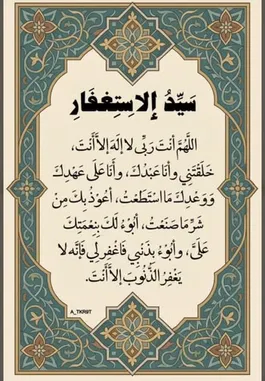 سَيِّدُ إلاِستِغفَارِ
اللَّهُمَّ أَنْتَ رَبِّي لا إِلَهَ إِلاَّ أَنْتَ،
خَلَقْتَنِي وَأَنَا عَبْدُكَ، وَأَنَا عَلَى عَهْدِكَ
وَوَعْدِكَ مَا اسْتَطَعْتُ، أَعُوذُ بِكَ مِنْ
شَرِّ مَا صَنَعْتُ، أَبُوءُ لَكَ بِنِعْمَتِكَ
عَلَيَّ، وَأَبُوءُ بِذَنْبِي فَاغْفِرْ لِي فَإِنَّهُ لا
يَغْفِرُ الذُّنُوبَ إِلاَّ أَنْتَ.
A_TKR9T